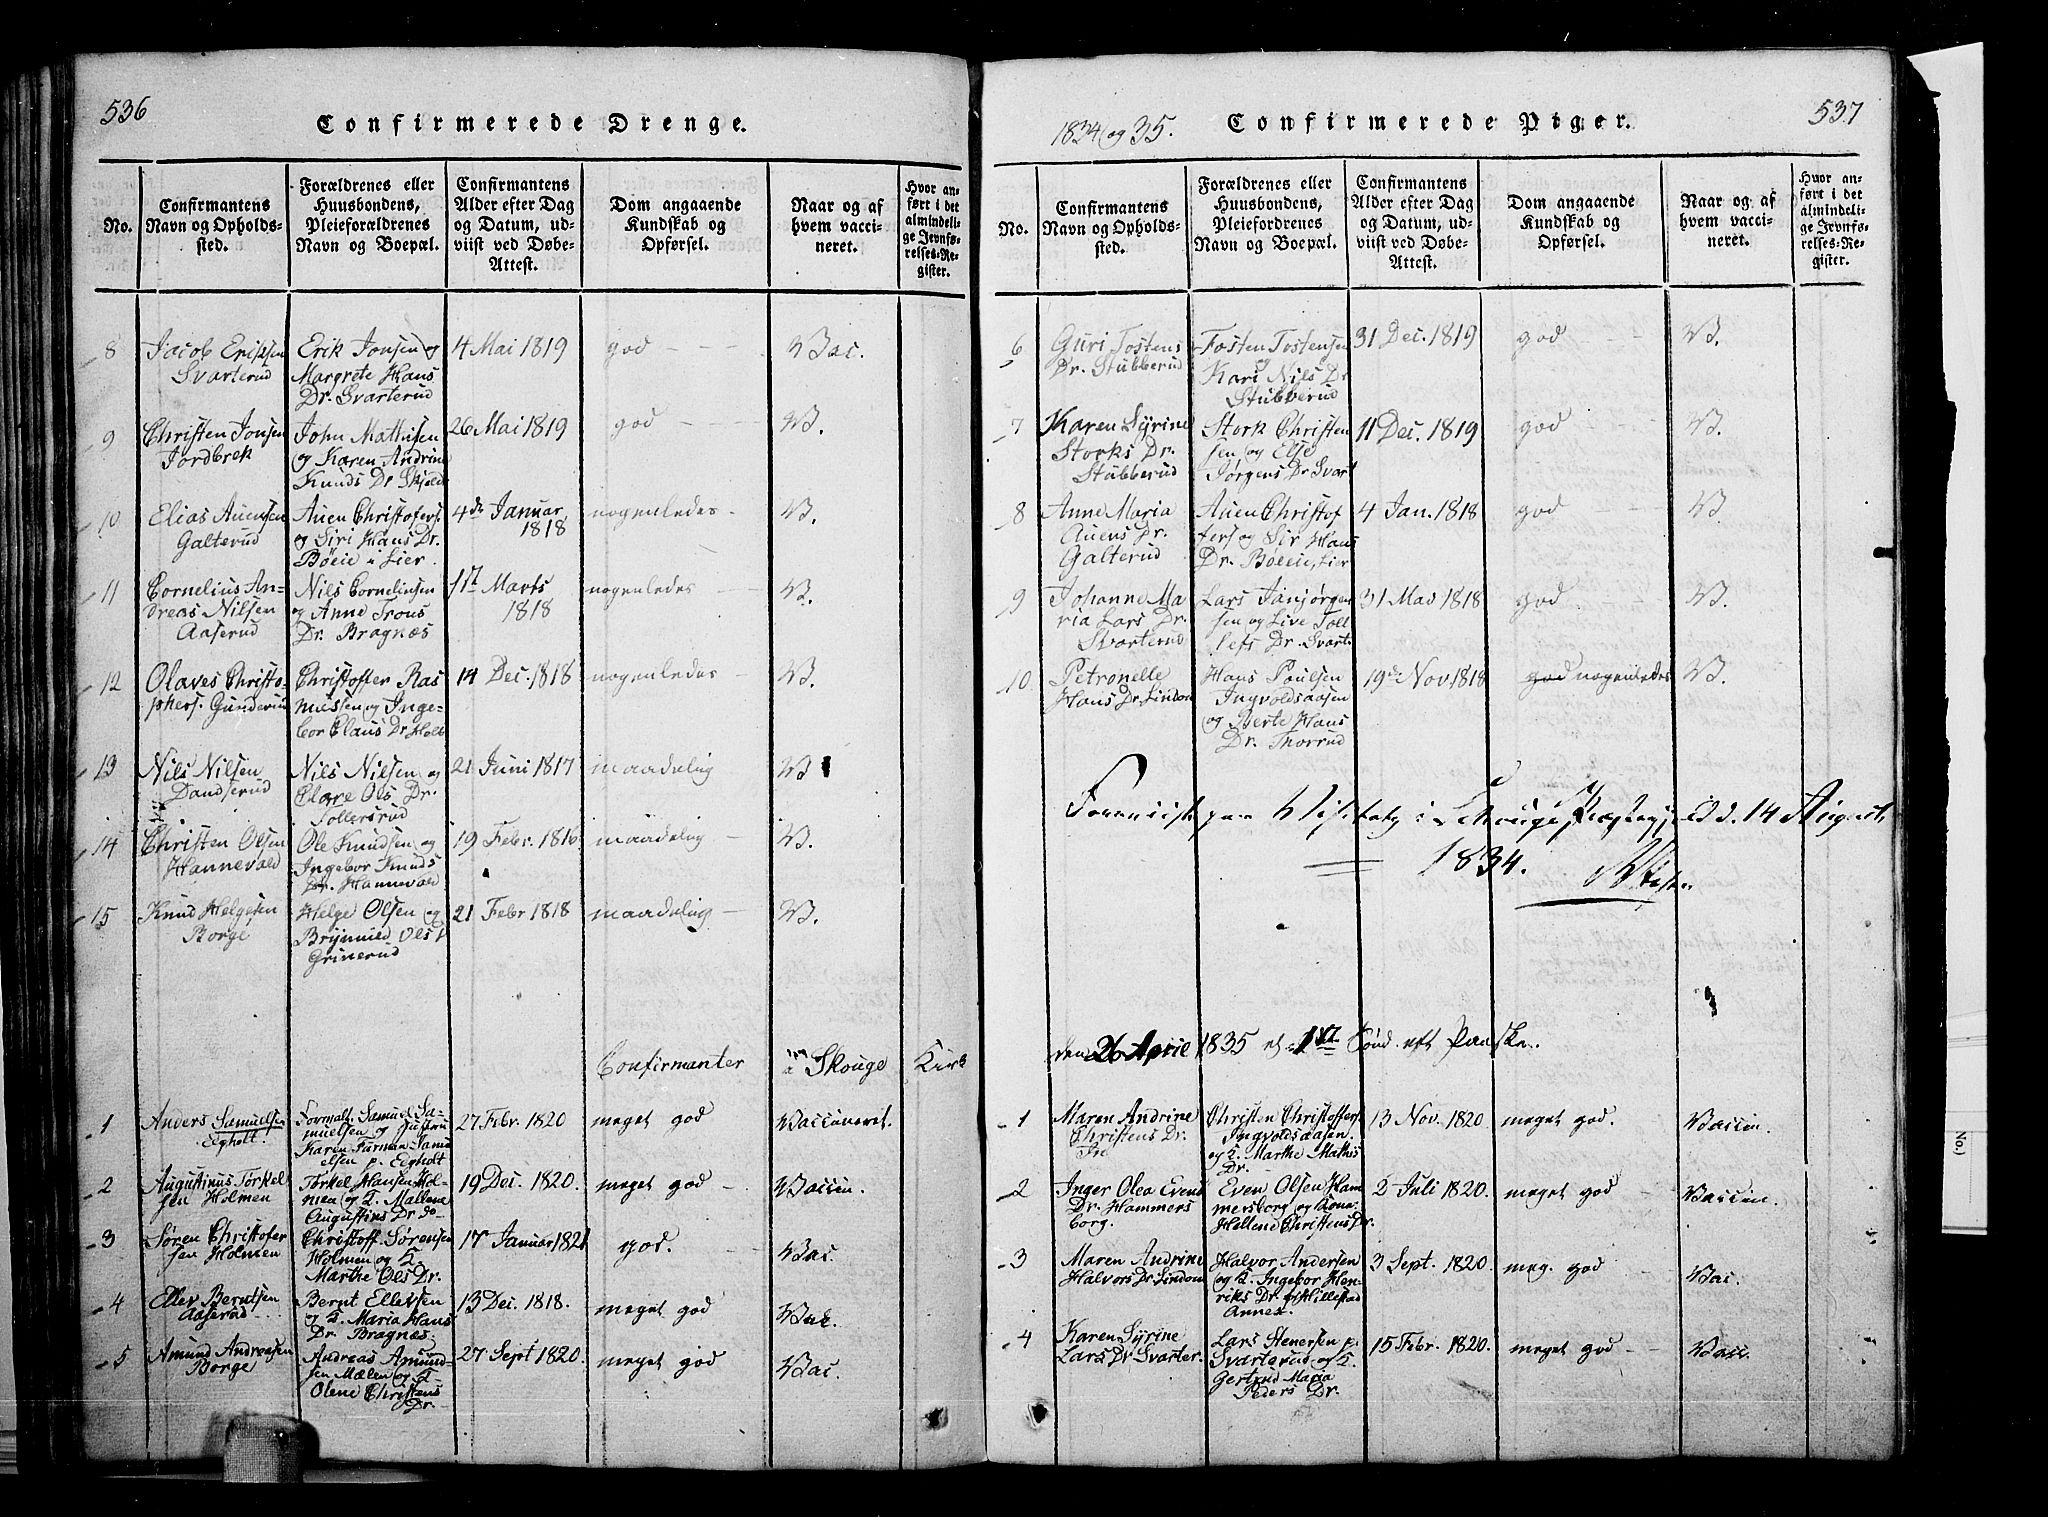 536
Confirmerede Drenge.
No.
Confirmantens
Navn og Opholds-
sted.
Forældrenes eller
Huusbondens,
Pleieforældrenes
Navn og Boepæl.
Confirmantens
Alder efter Dag
og Datum, ud-
viist ved Døbe-
Attest.
Dom angaaende
Kundskab og
Opførsel.
Naar og af
hvem vacci-
neret.
Hvor an-
ført i det
almindeli-
ge Jevnfø-
relses-Re-
gister.
8
Jacob Eriksen
Svarterud
Erik Jonsen og
Margrete Hans
Dr. Svarterud
4 Mai 1819
god
Vac.
9
Christen Jonsen
Jordbrek
John Mathisen
og Karen Andrine
Knuds Dr Skjold
26 Mai 1819
god
V.
10
Elias Auensen
Galterud
Auen Christofers.
og Siri Hans Dr.
Bøeie i Lier.
4de Januar
1818
nogenledes
V.
11
Cornelius An-
dreas Nilsen
Aaserud
Nils Cornelinsen
og Anne Trons
Dr. Bragnæs
1st Marts
1818
nogenledes
V.
12
Olaves Christo-
phers. Gunderud
Christoffer Ras
mussen og Inge-
bor Claus Dr Holt
14 Dec. 1818
nogenledes
V.
13
Nils Nilsen
Dandserud
Nils Nilsen og
Clare Ols Dr.
Tollersrud
21 Juni 1817
maadelig
V
14
Christen Olsen
Hannevald
Ole Knudsen og
Ingebor Knuds
Dr. Hannevald
19 Febr. 1816
maadelig
V.
15
Knud Helgesen
Borge
Helge Olsen og
Brynnild Ols D
Grinerud
21 Febr 1818
maadelig
V.
Confirmanter i Skouge Kirk
1
Anders Samuelsen
Egholt.
Samuel Sa-
muelsen og
Karen
elsen p. Egholt
27 Febr. 1820
meget god
Vaccineret.
2
Augustinus Torkel
sen Holmen
Torkel Hansen Hol-
men og K. Mallene
Augustins Dr do
19 Dec. 1820.
meget god
Vaccin.
3
Søren Christofer
sen Holmen
Christoff. Sørensen
Holmen og K.
Marthe Ols Dr.
17 Januar 1821
god.
Vac.
4
Ellev Berntsen
Aaserud
Bernt Ellevsen
og K. Maria Hans
Dr. Bragnæs.
13 Dec. 1818.
meget god
Vac.
5
Amund Andreasen
Borge
Andreas Amund-
sen Mælen og K
Olene Christens
Dr.
27 Sept 1820.
meget god
Vac.
1834 og 35.
Confirmerede Piger.
537
No.
Confirmantens
Navn og Opholds-
sted.
Forældrenes eller
Huusbondens,
Pleiefordrenes
Navn og Boepæl.
Confirmantens
Alder efter Dag
og Datum, ud-
viist ved Døbe-
Attest.
Dom angaaende
Kundskab og
Opførsel.
Naar og af
hvem vacci-
neret.
Hvor an-
ført i det
almindeli-
ge Jevnfø-
relses-Re-
gister.
6
Guri Tostens
Dr. Stubberud
Tosten Tostensen
og
Kari Nils Dr
Stubberud
31 Dec. 1819
god
V.
7
Karen Syrine
Storks Dr.
Stubberud
Stork Christen
sen og Else
Jørgens Dr Svart
11 Dec. 1819
god
V.
8
Anne Maria
Auens Dr.
Galterud
Auen Christof
fers og Sir Hans
Dr. Bøeie, Lier
4 Jan. 1818
god
V.
9
Johanne Ma
ria Lars Dr.
Svarterud
Lars Janjørgen
sen og Live Tol
lefs Dr Svart.
31 Mai 1818
god
V.
10
Petronelle
Hans Dr Lindom
Hans Poulsen
Ingvoldsaasen
og Berte Hans
Dr. Thorrud
19de Nov. 1818
god nogenledes
V.
Visitats i Schouger Præstegjeld d. 14 August
1834.
den 26 April 1835 1ste Sønd. eft Paaske.
1
Maren Andrine
Christens Dr.
In
Christen Christoffers
Ingvoldsaasen.
og K. Marthe Mathis
Dr.
13 Nov. 1820
meget god.
Vaccin.
2
Inger Olea Evens
Dr. Hammers
borg.
Even Olsen Ham
mersborg og Kone
Hellene Christens Dr.
2 Juli 1820.
meget god
Vaccin.
3
Maren Andrine
Halvors Dr Lindom
Halvor Andersen
og K. Ingebor Hen-
riks Dr. Hillestad
Annex.
3 Sept. 1820.
meg. god
Vac.
4
Karen Syrine
Lars Dr Svarter.
Lars Stenersen p.
Svarterud og K.
Gertrud Maria
Peders Dr.
15 Febr. 1820.
meget god
Vacc.
No.)